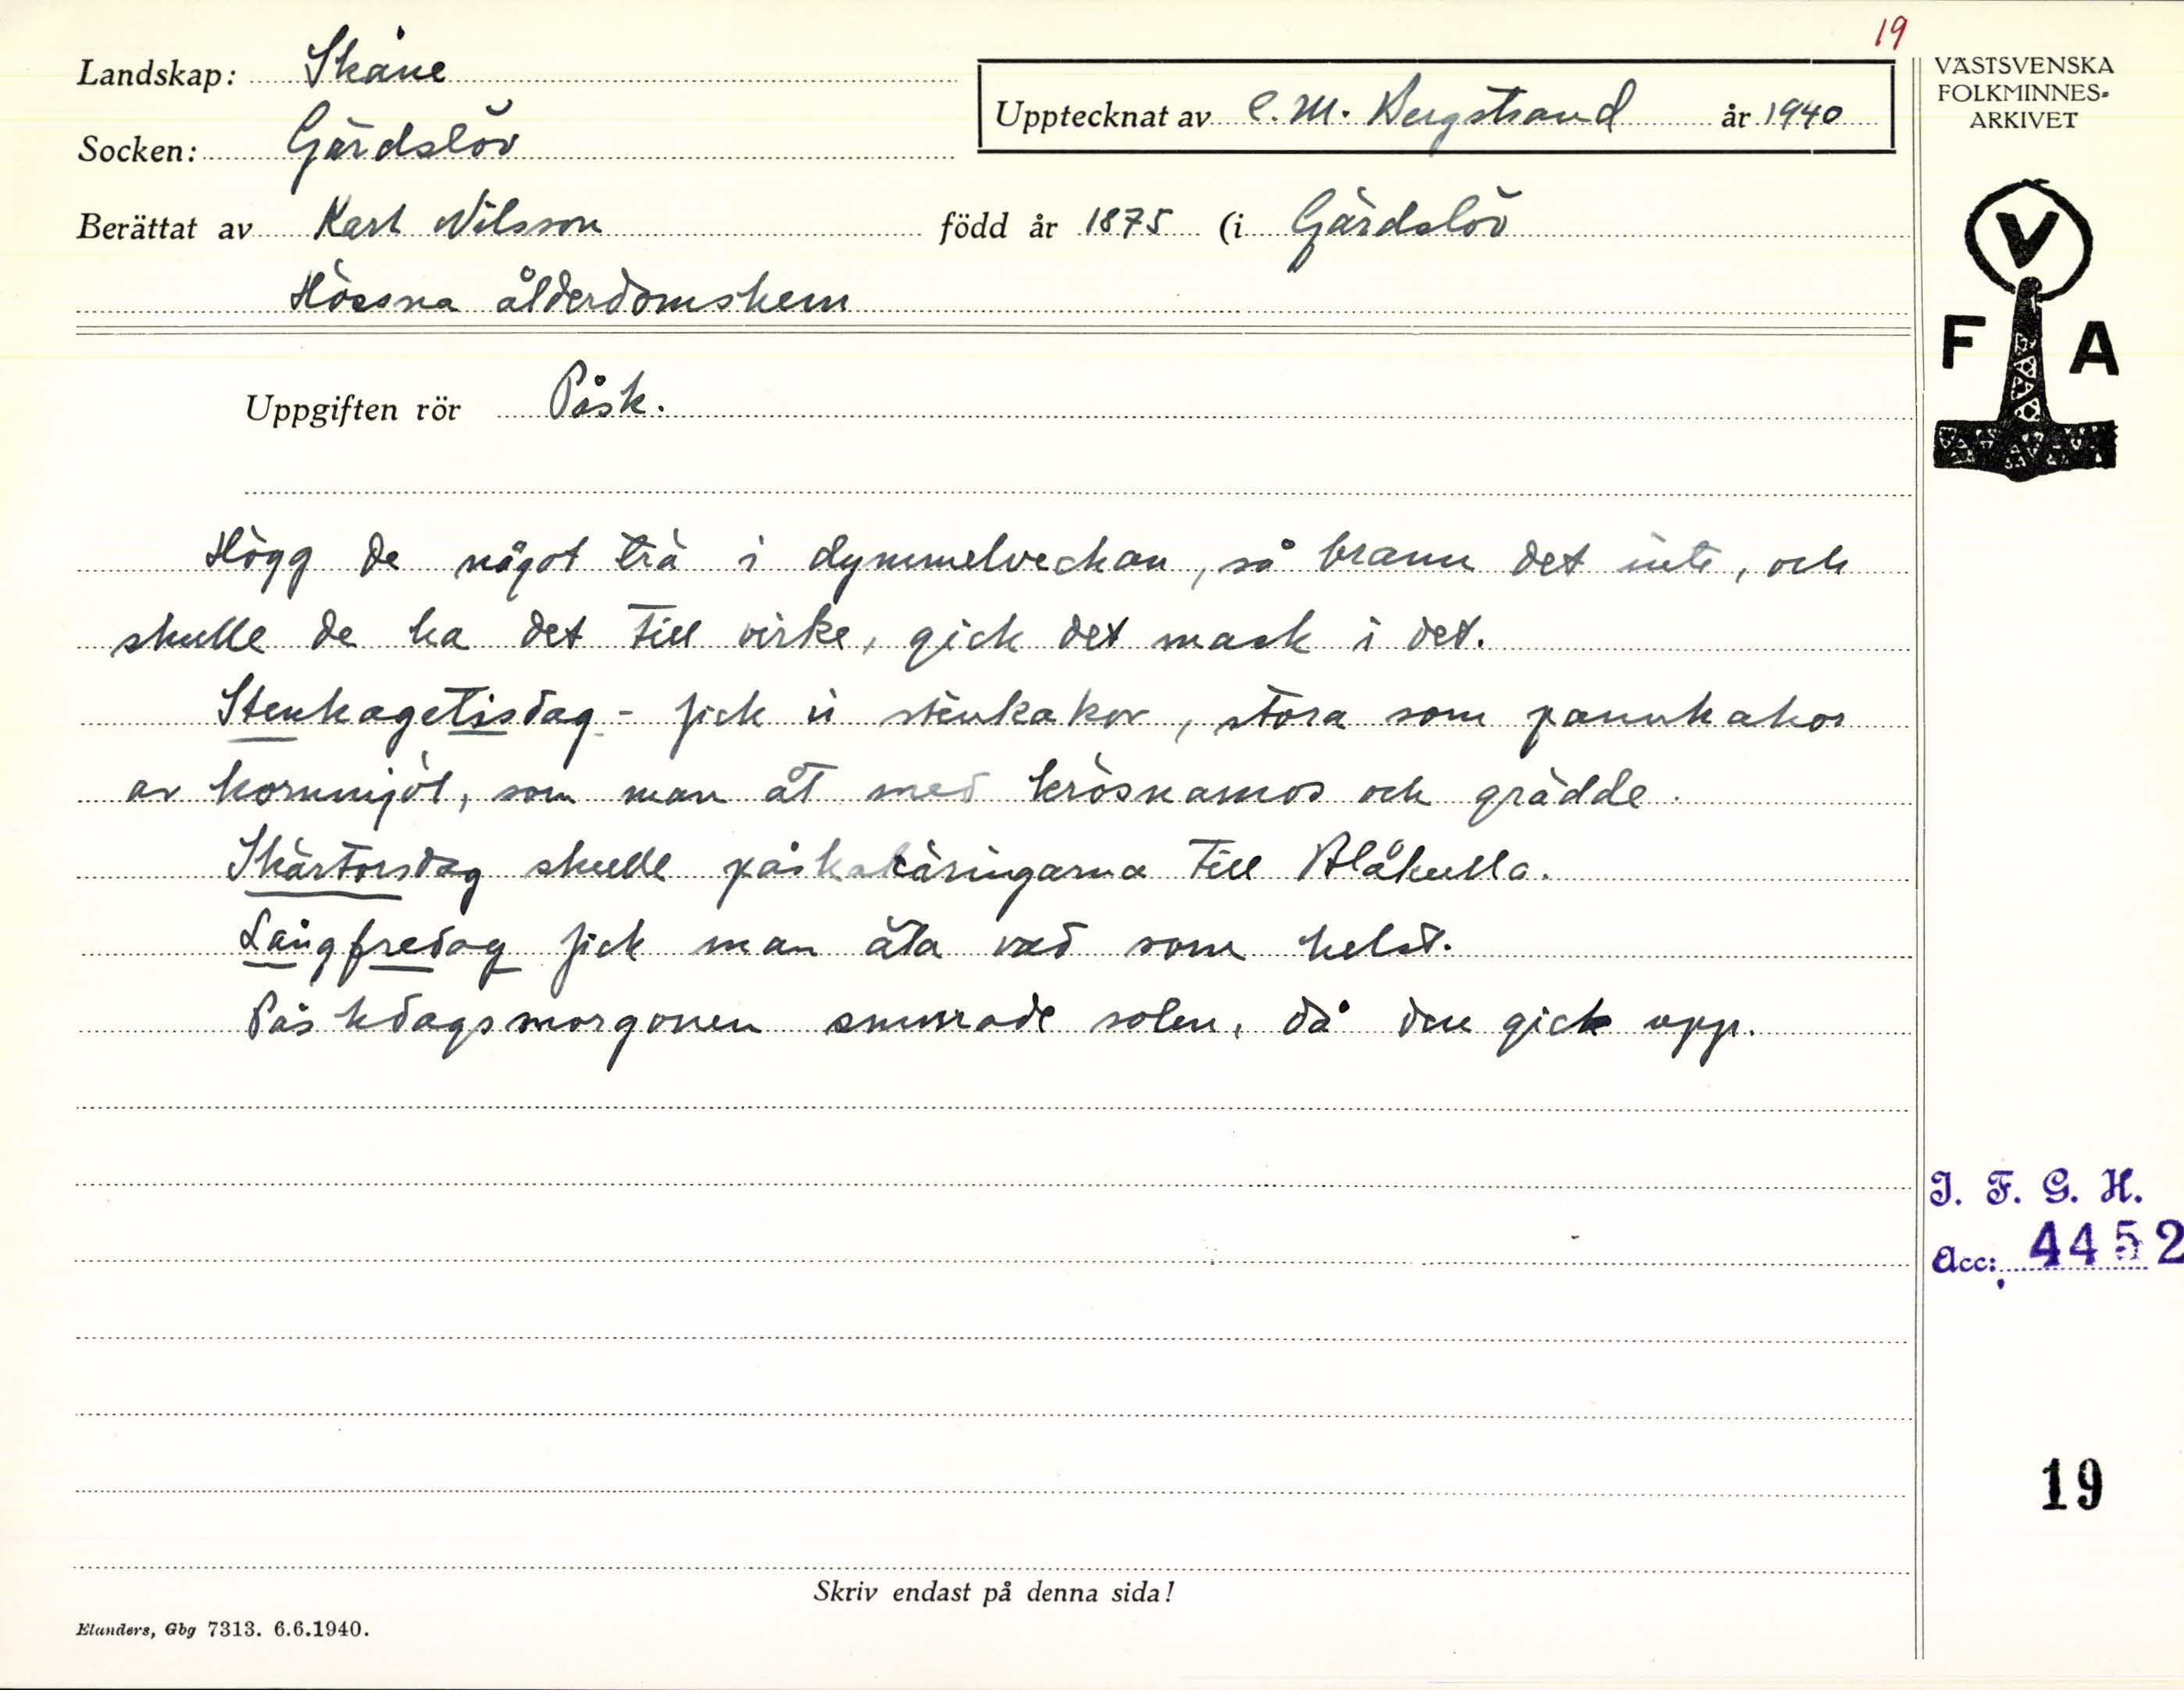 19
Landskap: Skåne
Socken: Gärdslöv
Upptecknat av C. M. Bergstrand år 1940
Berättat av Karl Nilsson född år 1875 (i Gärdslöv
Hössna ålderdomshem
Uppgiften rör Påsk.
Högg de något trä i dymmelveckan, så brann det inte, och
skulle de ha det till virke, gick det mask i det.
Stenkagetisdag - fick vi stenkakor, stora som pannkakor
av kornmjöl, som man åt med krösnamos och grädde.
Skärtorsdag skulle påskakäringarna till Blåkulla.
Långfredag fick man äta vad som helst.
Påskdagsmorgonen snurrade solen, då den gick upp.
Skriv endast på denna sida!
Elanders, Gbg 7313. 6.6.1940.
VÄSTSVENSKA
FOLKMINNES=
ARKIVET
V
F A
I. F. G. H.
Acc: 4452
19